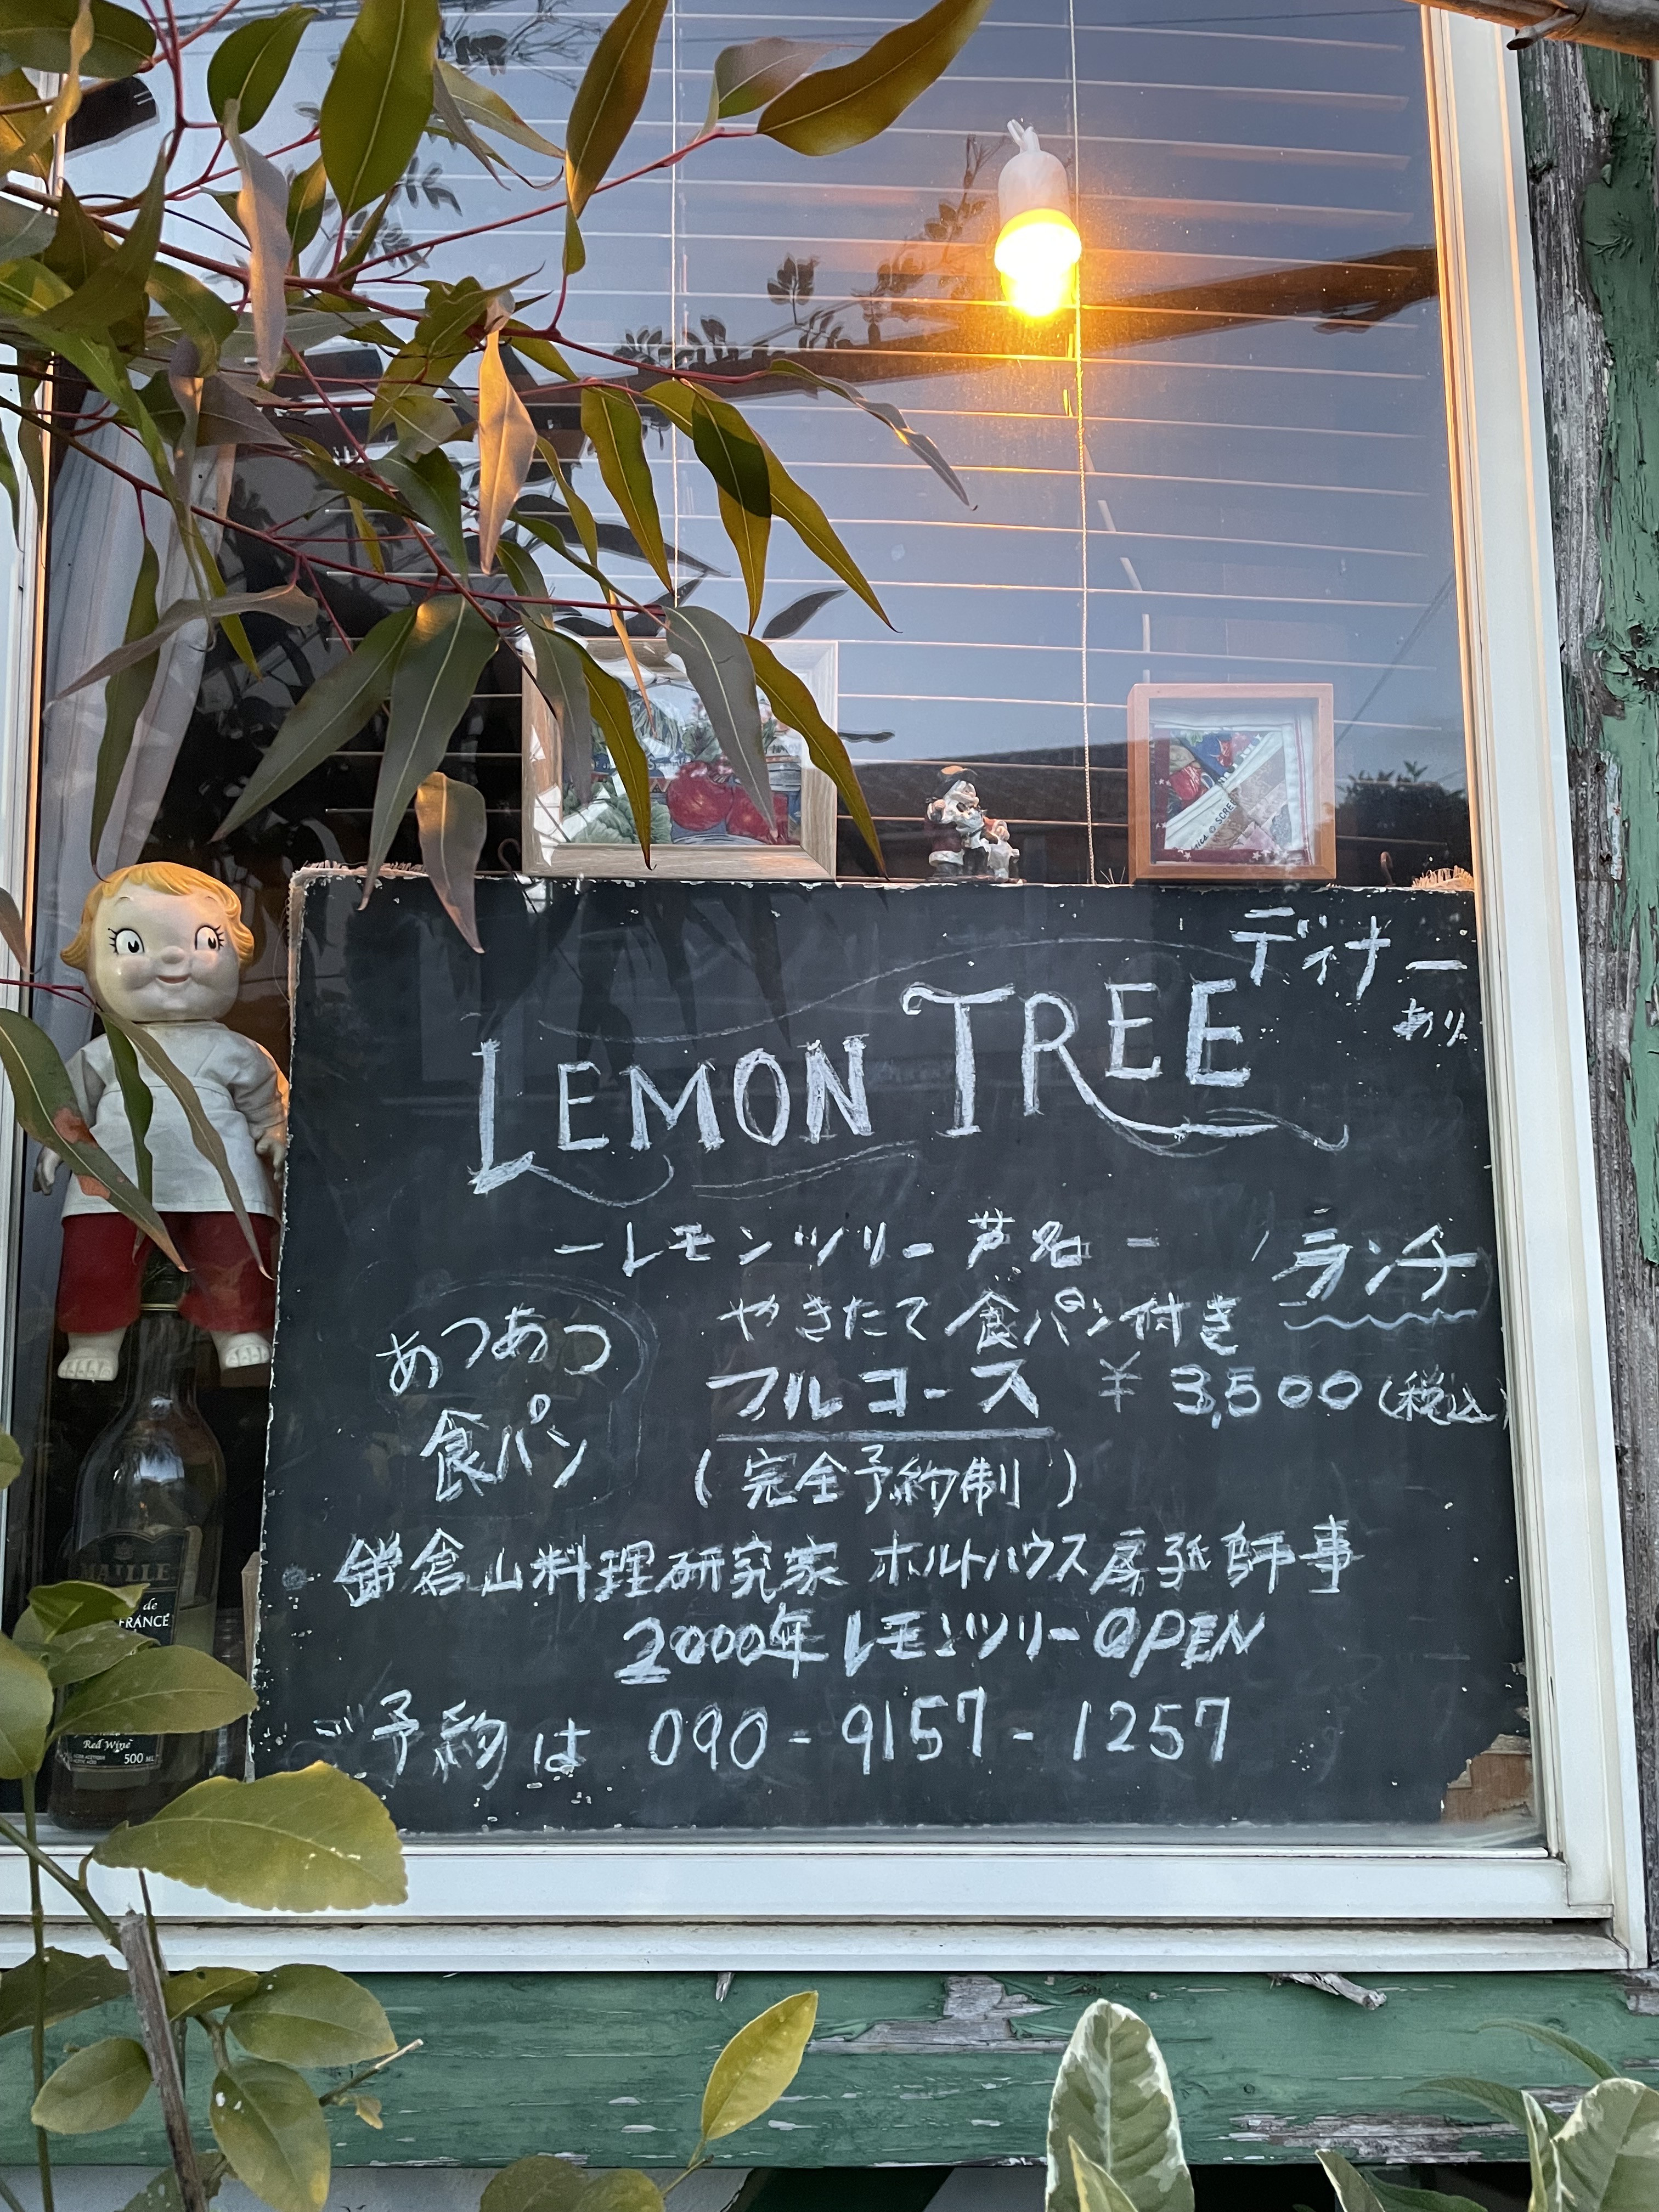 ディナー
あり
LEMON TREE
ーレモンツリー 芦名ー
ランチ
あつあつ
食パン
やきたて食パン付き
フルコース ¥3,500(税込)
(完全予約制)
鎌倉山料理研究家 ホルトハウス房子師事
2000年 レモンツリーOPEN
ご予約は 090-9157-1257
MAILLE
de
FRANCE
Red Wine
500 ML